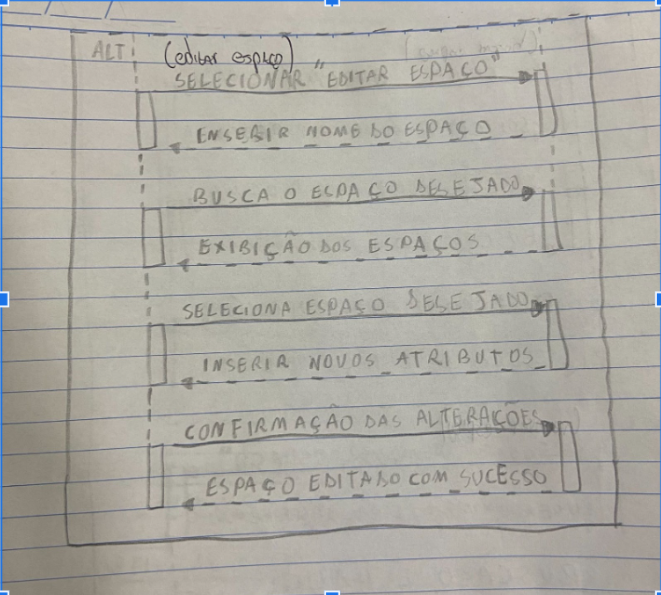 ALT
(editar espaço)
SELECIONAR "EDITAR ESPAÇO"
INSERIR NOME DO ESPAÇO
BUSCA O ESPAÇO DESEJADO
EXIBIÇÃO DOS ESPAÇOS
SELECIONA ESPAÇO DESEJADO
INSERIR NOVOS ATRIBUTOS
CONFIRMAÇÃO DAS ALTERAÇÕES
ESPAÇO EDITADO COM SUCESSO